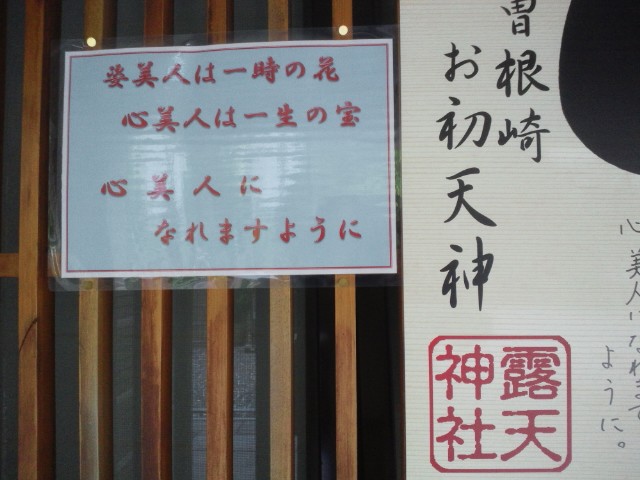 姿美人は一時の花
心美人は一生の宝
心美人に
なれますように
曽根崎
お初天神
露天
神社
心美人になれます
ように。